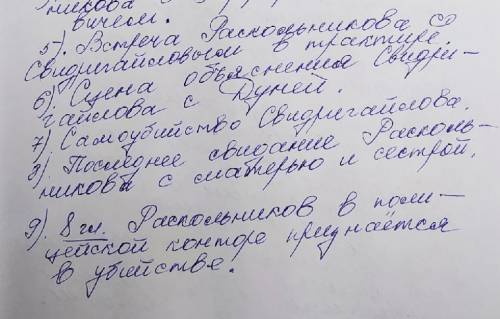 никова
вичем.
5). Встреча Раскольникова с
Свидригайловым в трактире.
6). Сцена объяснения Свидри-
гайлова с Дуней.
7). Самоубийство Свидригайлова.
8). Последнее свидание Расколь-
никова с матерью и сестрой.
9). 8 гл. Раскольников в поли-
цейской конторе признаётся
в убийстве.